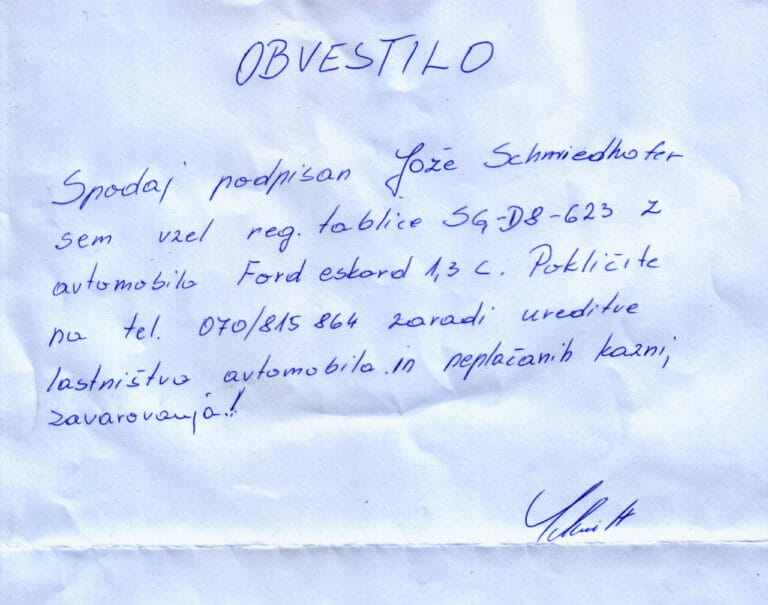 OBVESTILO
Spodaj podpisan Jože Schmiedhofer
sem vzel reg. tablice SG-D8-623 z
avtomobila Ford eskord 1,3 C. Pokličite
na tel. 070/815 864 zaradi ureditve
lastništva avtomobila in neplačanih kaznij
zavarovanja!